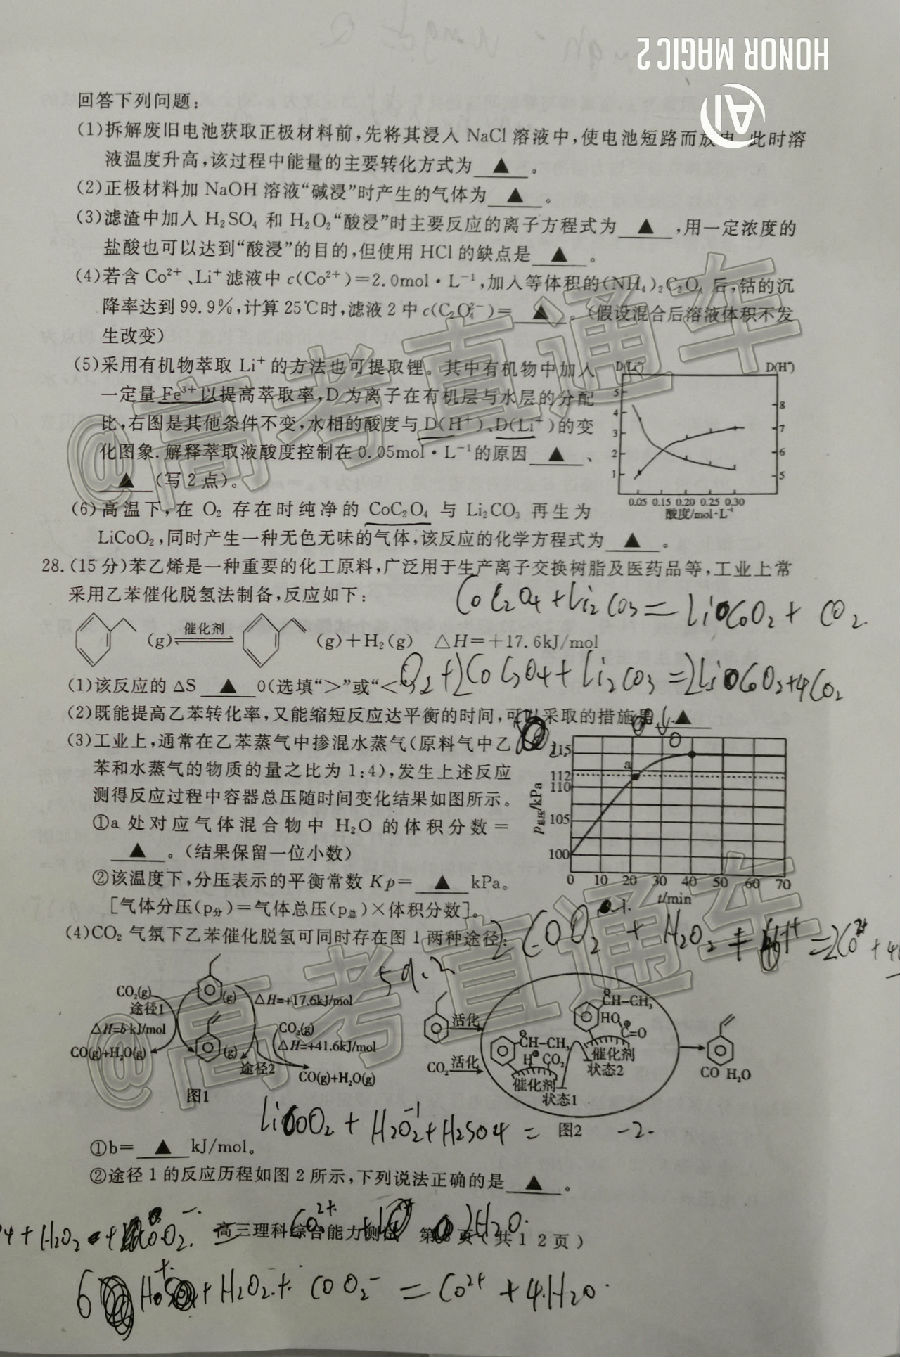 HONOR MAGIC 2
AI
回答下列问题:
(1)拆解废旧电池获取正极材料前,先将其浸入 NaCl 溶液中,使电池短路而放电,此时溶
液温度升高,该过程中能量的主要转化方式为 ▲ 。
(2)正极材料加 NaOH 溶液“碱浸”时产生的气体为 ▲ 。
(3)滤渣中加入 H₂SO₄ 和 H₂O₂“酸浸”时主要反应的离子方程式为 ▲ ,用一定浓度的
盐酸也可以达到“酸浸”的目的,但使用 HCl 的缺点是 ▲ 。
(4)若含 Co²⁺、Li⁺ 滤液中 c(Co²⁺)=2.0mol·L⁻¹,加入等体积的(NH₄)₂C₂O₄ 后,钴的沉
降率达到 99.9%,计算 25℃时,滤液 2 中 c(C₂O₄²⁻)= ▲ 。(假设混合后溶液体积不发
生改变)
(5)采用有机物萃取 Li⁺ 的方法也可提取锂。其中有机物中加入
一定量 Fe³⁺以提高萃取率,D 为离子在有机层与水层的分配
比,右图是其他条件不变,水相的酸度与 D(H⁺)、D(Li⁺)的变
化图象.解释萃取液酸度控制在 0.05mol·L⁻¹的原因 ▲ 、
▲ (写 2 点)。
D(Li⁺) D(H⁺)
5
4 8
3 7
2 6
1 5
0.05 0.15 0.20 0.25 0.30
酸度/mol·L⁻¹
(6)高温下,在 O₂ 存在时纯净的 CoC₂O₄ 与 Li₂CO₃ 再生为
LiCoO₂,同时产生一种无色无味的气体,该反应的化学方程式为 ▲ 。
28.(15 分)苯乙烯是一种重要的化工原料,广泛用于生产离子交换树脂及医药品等,工业上常
采用乙苯催化脱氢法制备,反应如下:
CoC₂O₄+Li₂CO₃=LiCoO₂+CO₂
(g) 催化剂 (g)+H₂(g) ΔH=+17.6kJ/mol
(1)该反应的 ΔS ▲ 0(选填“>”或“<
O₂+2CoC₂O₄+Li₂CO₃=2LiCoO₂+4CO₂
(2)既能提高乙苯转化率,又能缩短反应达平衡的时间,可以采取的措施是 ▲
(3)工业上,通常在乙苯蒸气中掺混水蒸气(原料气中乙
苯和水蒸气的物质的量之比为 1:4),发生上述反应
测得反应过程中容器总压随时间变化结果如图所示。
①a 处对应气体混合物中 H₂O 的体积分数=
▲ 。(结果保留一位小数)
②该温度下,分压表示的平衡常数 Kp= ▲ kPa。
[气体分压(p分)=气体总压(p总)×体积分数]。
p总/kPa
115
112
110
105
100
a
0 10 20 30 40 50 60 70
t/min
(4)CO₂ 气氛下乙苯催化脱氢可同时存在图 1 两种途径:
CO₂(g)
途径1
ΔH=b kJ/mol
CO(g)+H₂O(g)
(g)
(g)
ΔH=+17.6kJ/mol
CO₂(g)
ΔH=+41.6kJ/mol
途径2
CO(g)+H₂O(g)
图1
活化
CO₂ 活化
CH-CH₃
H CO₂
催化剂
状态1
CH-CH₃
HO
C=O
催化剂
状态2
CO H₂O
图2
LiCoO₂+H₂O₂+H₂SO₄=
①b= ▲ kJ/mol。
②途径 1 的反应历程如图 2 所示,下列说法正确的是 ▲ 。
高三理科综合能力测试 第 页(共12页)
H₂O₂+CoO₂⁻=Co²⁺+4H₂O
@高考直通车
@高考直通车